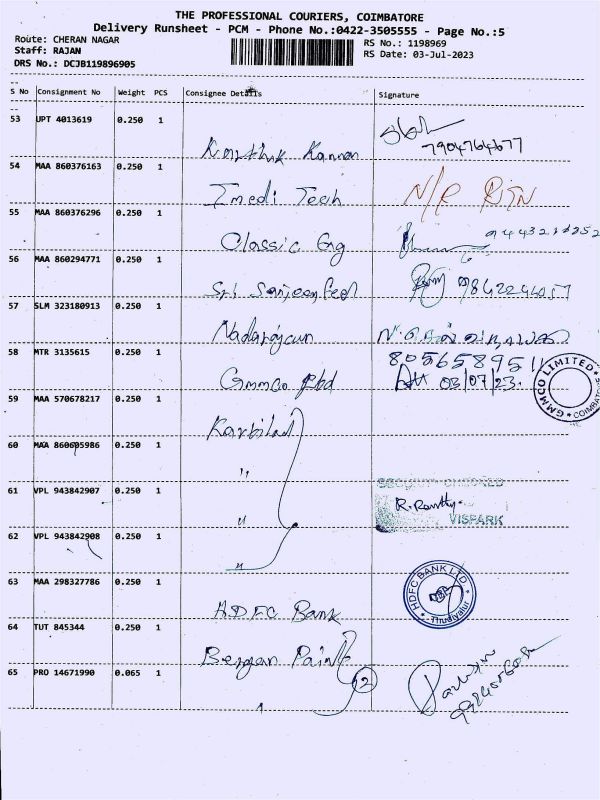 THE PROFESSIONAL COURIERS, COIMBATORE
Delivery Runsheet - PCM - Phone No.:0422-3505555 - Page No.:5
Route: CHERAN NAGAR
RS No.: 1198969
Staff: RAJAN
RS Date: 03-Jul-2023
DRS No.: DCJB119896905
S No Consignment No Weight PCS Consignee Details Signature
53 UPT 4013619 0.250 1
Karthik Kannan 7904764677
54 MAA 860376163 0.250 1
Imedi Tech N/R RTN
55 MAA 860376296 0.250 1
Classic Eng
56 MAA 860294771 0.250 1
Sri
57 SLM 323180913 0.250 1
Nadarajan
58 MTR 3135615 0.250 1
8056589511
Gmmco 03/07/23
GMMCO LIMITED
COIMBATORE
59 MAA 570678217 0.250 1
60 MAA 860605986 0.250 1
"
61 VPL 943842907 0.250 1
"
VISPARK
62 VPL 943842908 0.250 1
"
63 MAA 298327786 0.250 1
HDFC Bank
HDFC BANK LTD.
Thudiyalur
64 TUT 845344 0.250 1
Berger Paints
65 PRO 14671990 0.065 1
12